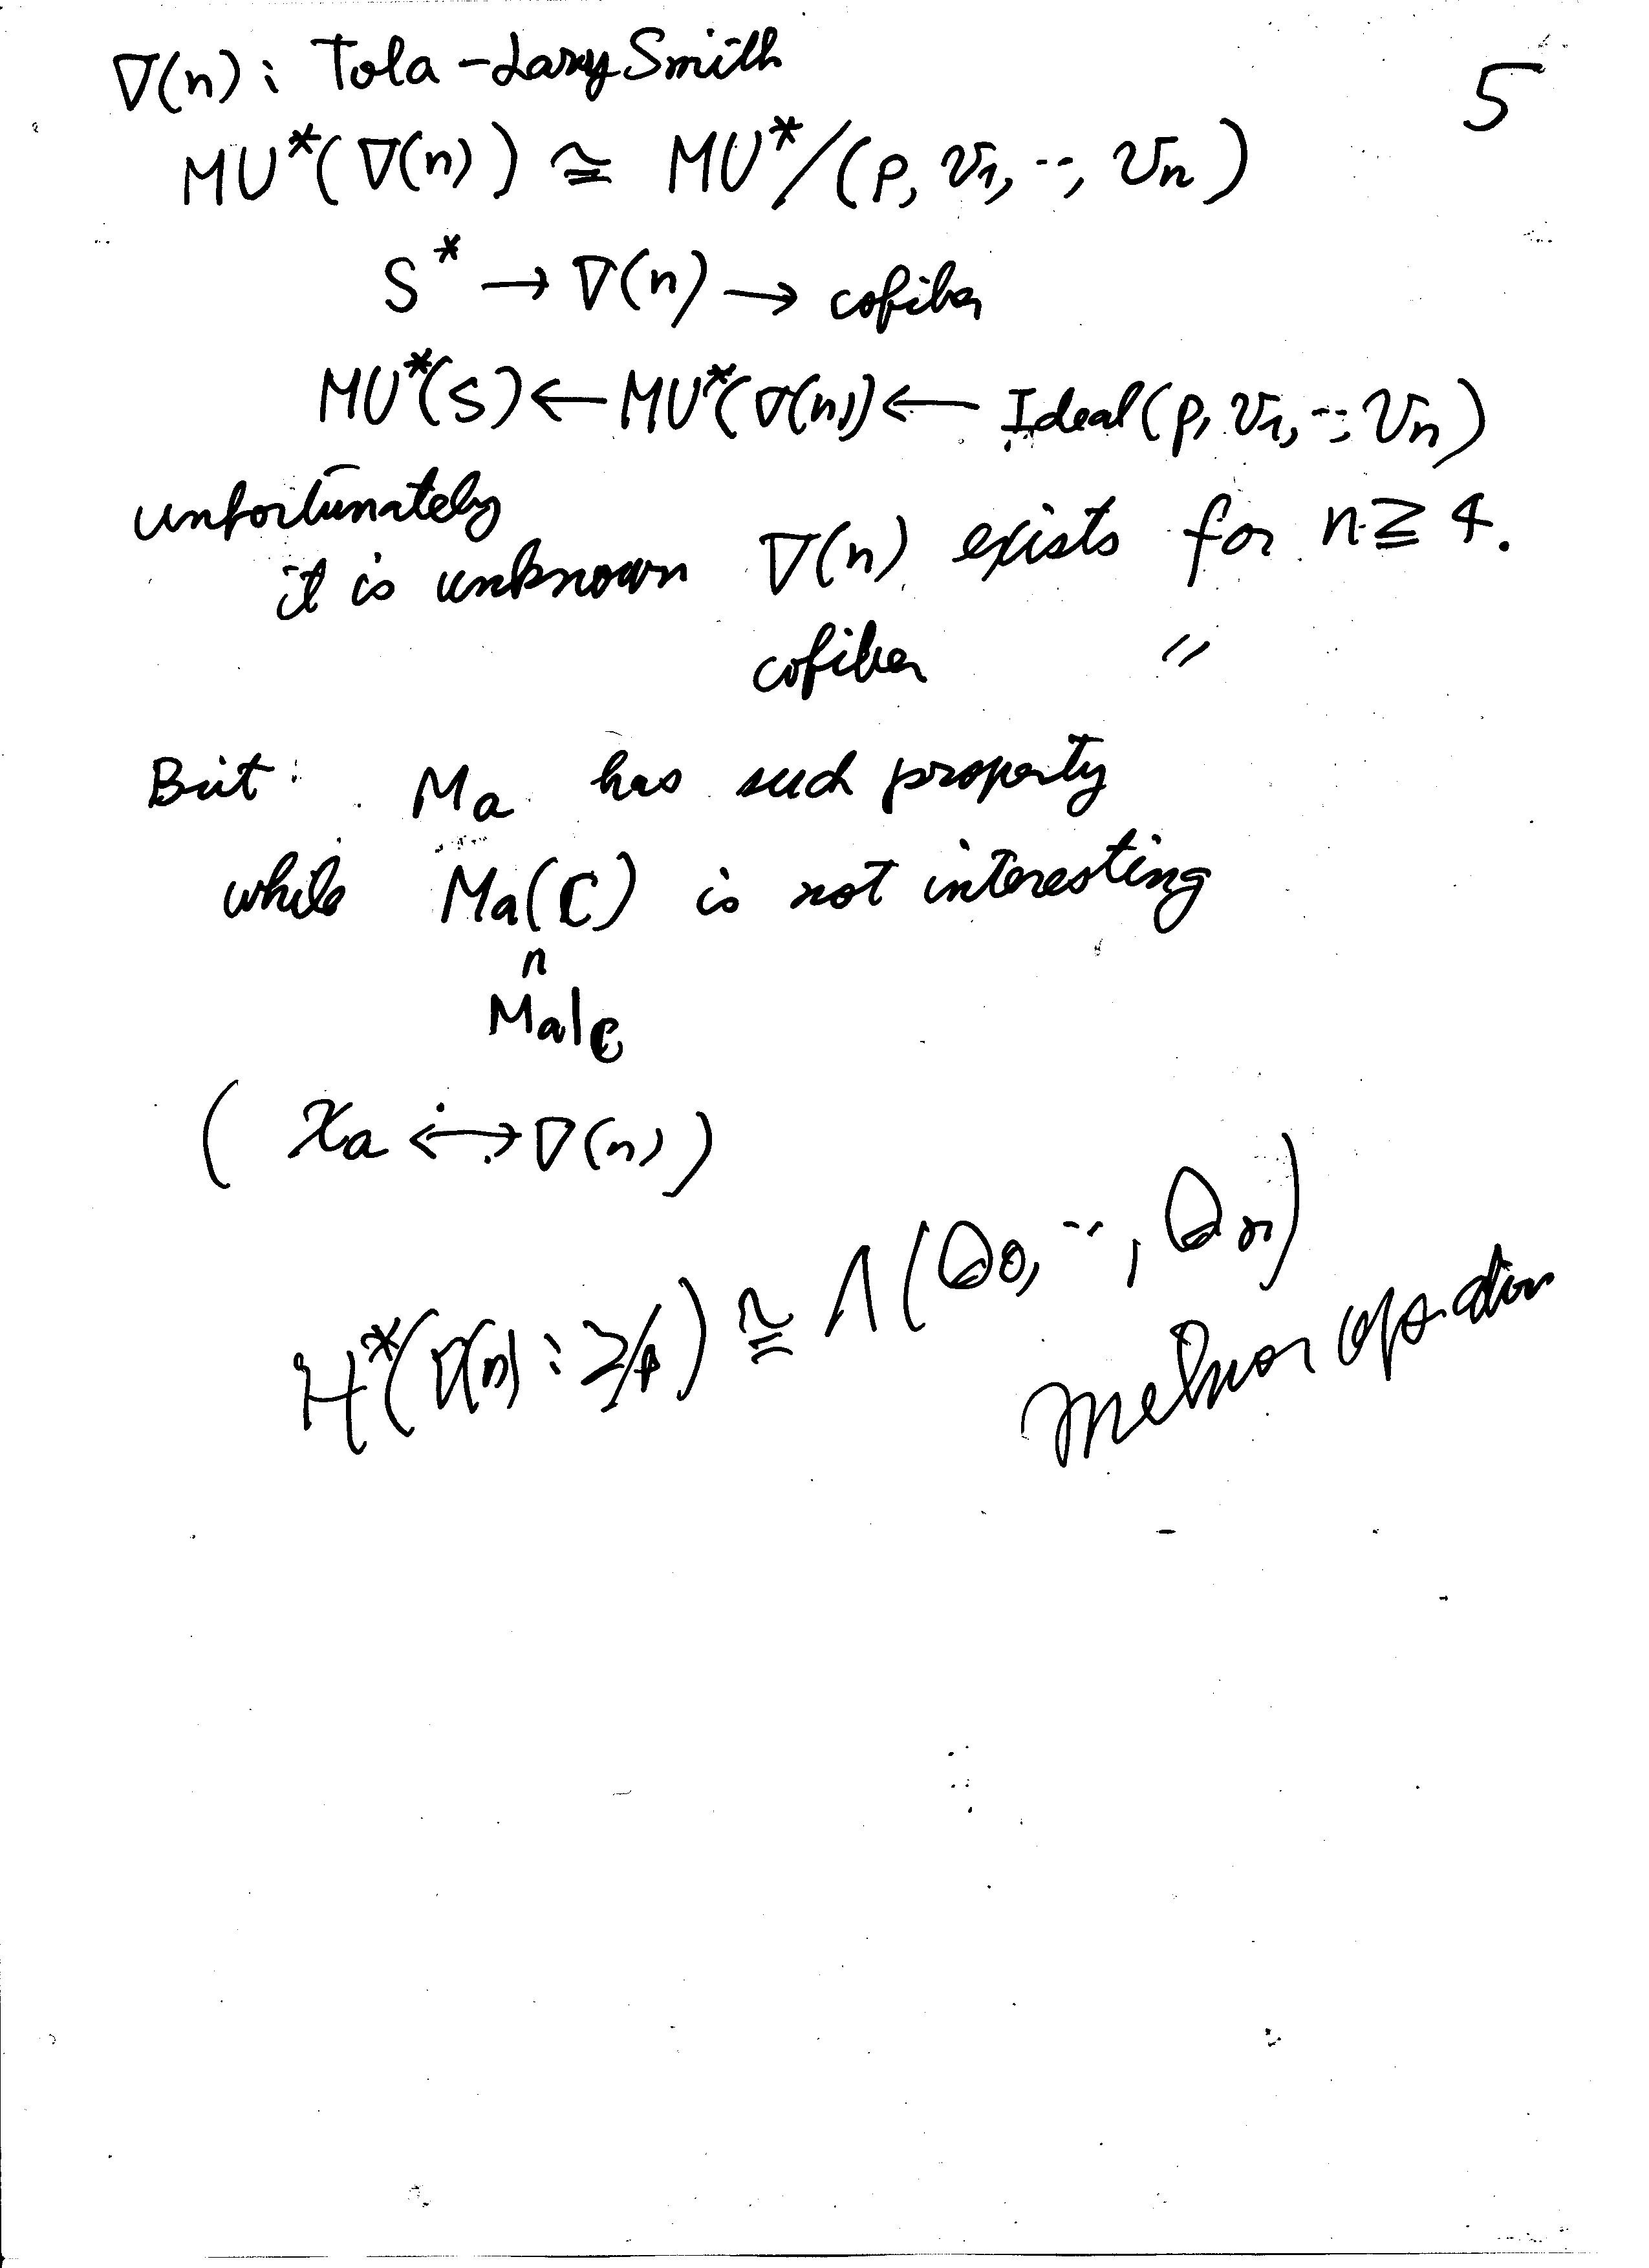 5
∇(n): Tola-Lary Smith
MU*(∇(n)) ≅ MU*/(p, v1, .., vn)
S* → ∇(n) → cofiber
MU*(S) ← MU*(∇(n)) ← Ideal(p, v1, .., vn)
unfortunately
it is unknown ∇(n) exists for n ≧ 4.
cofiber 〃
But: Ma has such property
while Ma(ℂ) is not interesting
n
Ma|ℂ
( χa ↔ ∇(n) )
H*(∇(n) : Z/p) ≅ Λ(Q0, .., Qn)
Melnor operation